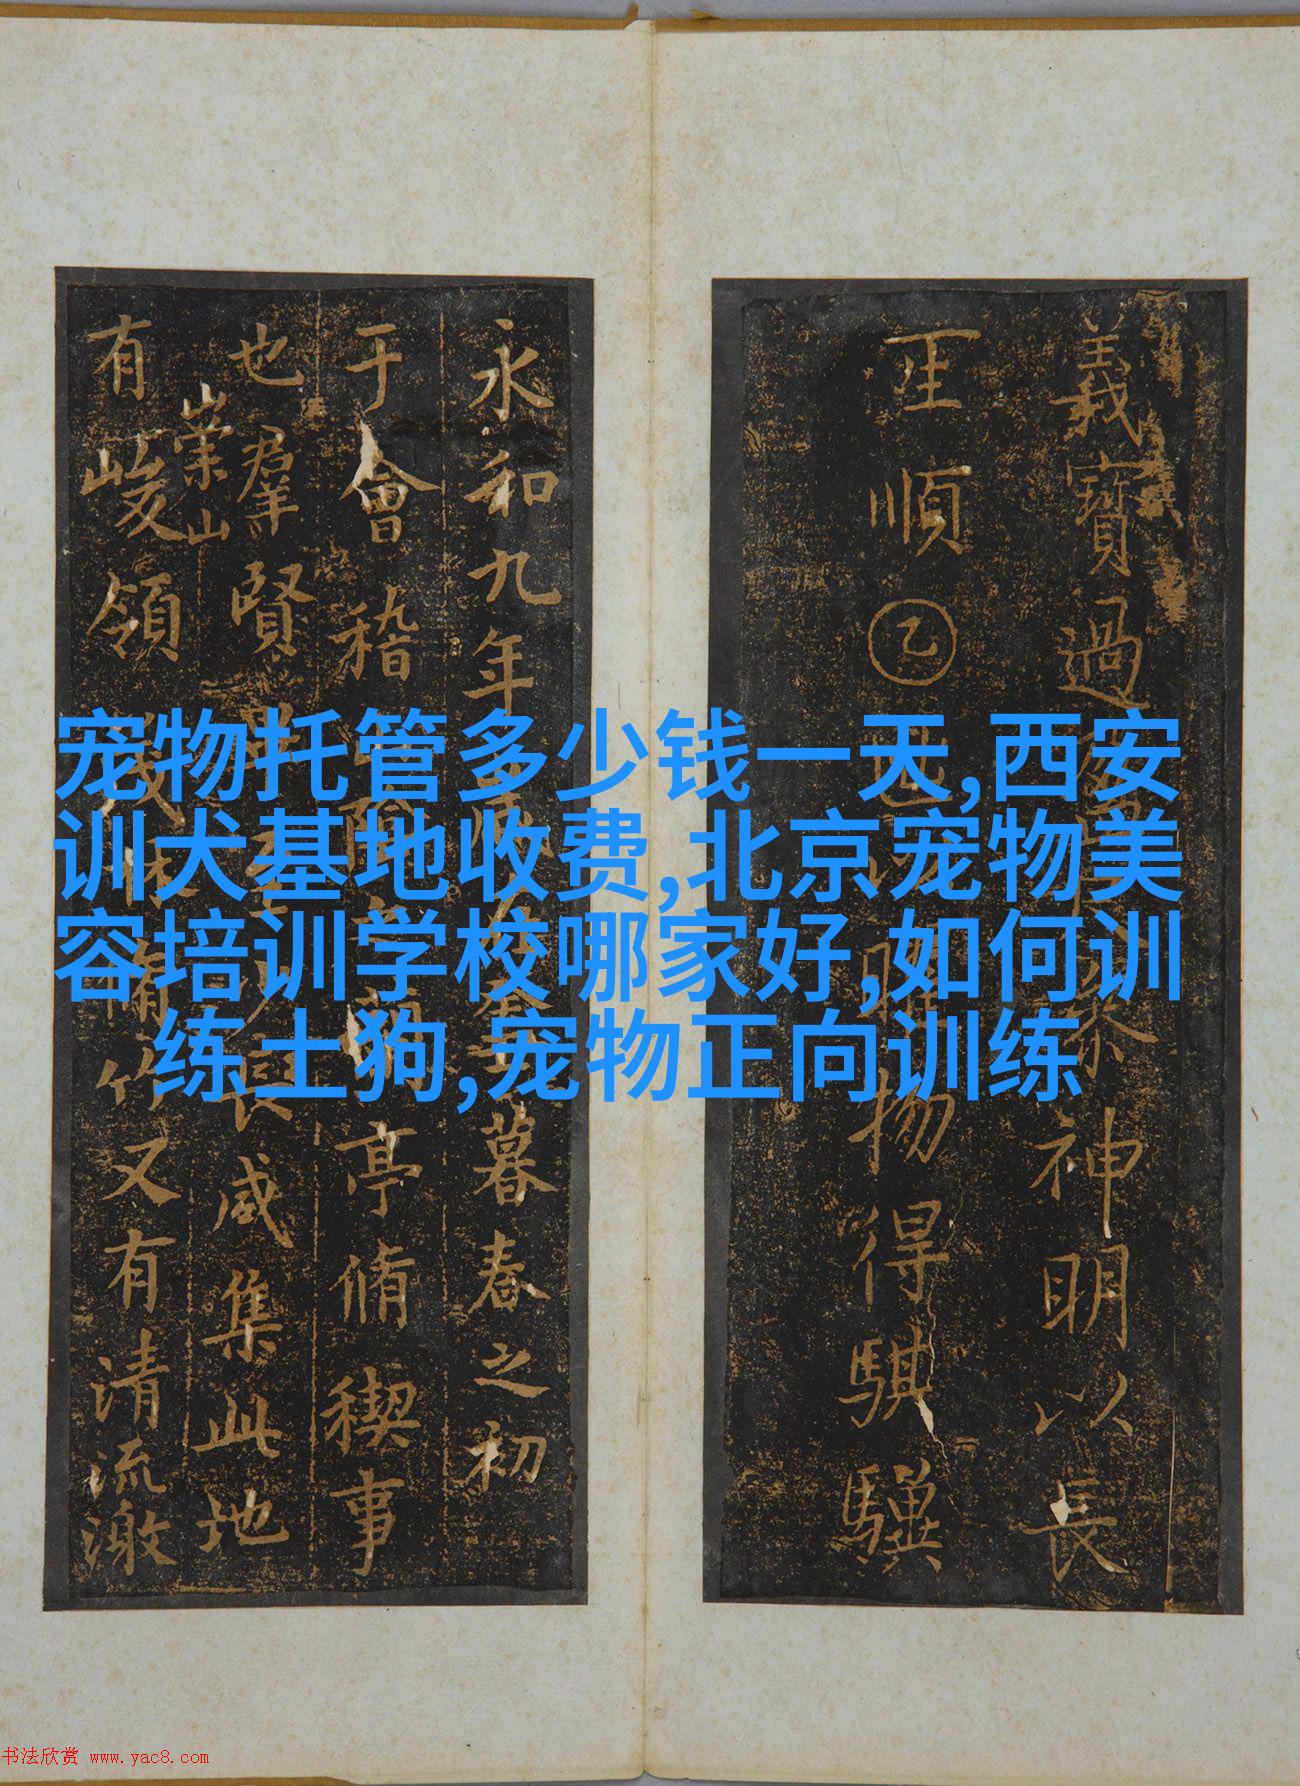 宠物托管多少钱一天,西安
训犬基地收费,北京宠物美
容培训学校哪家好,如何训
练土狗,宠物正向训练
義寶過神明以長
王順乙物得騏驥
永和九年暮春之初
于會稽亭脩稧事
也羣賢咸集此地
有崇山峻領脩竹又有清流激
书法欣赏 www.yac8.com